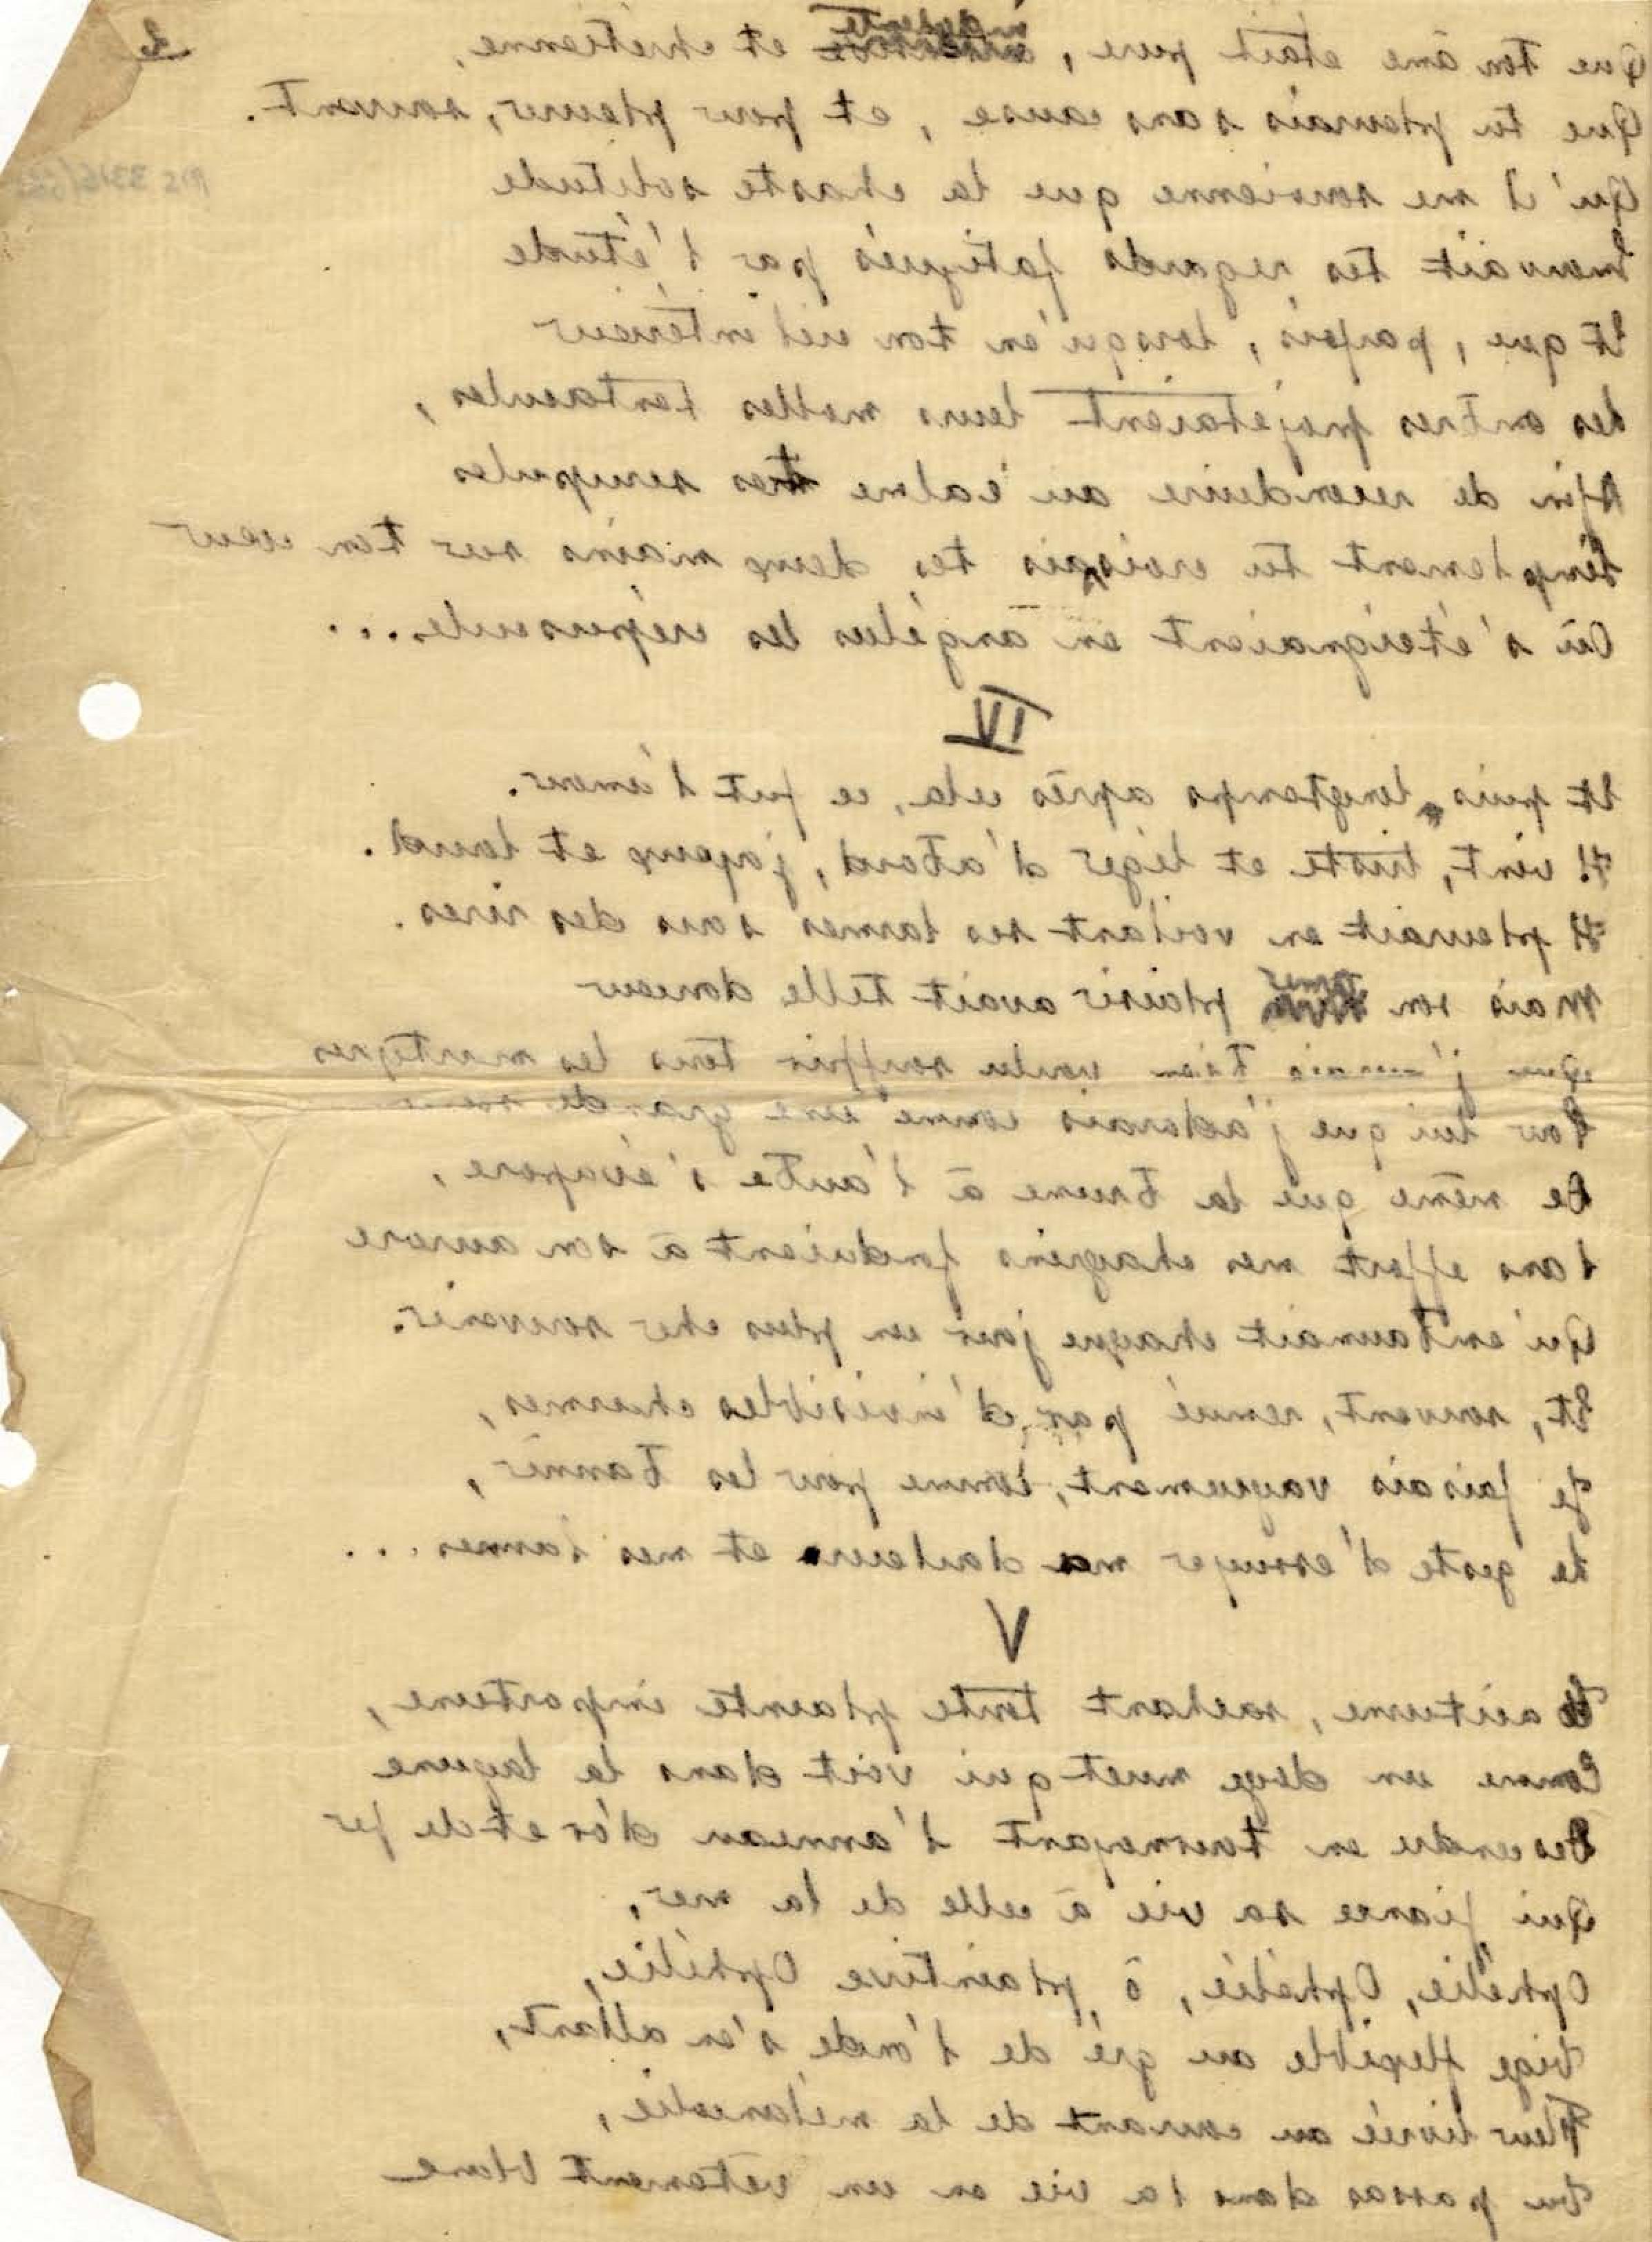 2
Que ton âme était pure, indolente et chrétienne,
Que tu pleurais sans cause, et pour pleurer, souvent.
Qu'il me souvienne que la chaste solitude
Mouvait tes regards fatigués par l'étude
Et que, parfois, lorsqu'en ton ciel intérieur
Les antres projetaient leurs molles tentacules,
Afin de reconduire au calme tes scrupules
Simplement tu croisais tes deux mains sur ton cœur
Où s'éteignaient en angélus les crépuscules....
IV
Et puis, longtemps après cela, ce fut l'amour.
Il vint, triste et léger d'abord, joyeux et lourd.
Il pleurait en voilant ses larmes sous des rires.
Mais son amer plaisir avait telle douceur
Que j'aurais bien voulu souffrir tous les martyres
Pour lui que j'adorais comme une grande sœur
De même que la brume à l'aube s'évapore,
Sans effort mes chagrins fondaient à son aurore
Qu'embaumait chaque jour un plus cher souvenir.
Et, souvent, remué par d'invisibles charmes,
Je faisais vaguement, comme pour les bannir,
Le geste d'essuyer ma douleur et mes larmes...
V
Taciturne, sachant toute plainte importune,
Comme un doge muet qui voit dans la lagune
Descendre en tournoyant l'anneau d'or et de fer
Qui fiance sa vie à celle de la mer,
Ophélie, Ophélie, ô plaintive Ophélie,
Tige flexible au gré de l'onde s'en allant,
Fleur livrée au courant de la mélancolie,
Tu passas dans la vie en un vêtement blanc